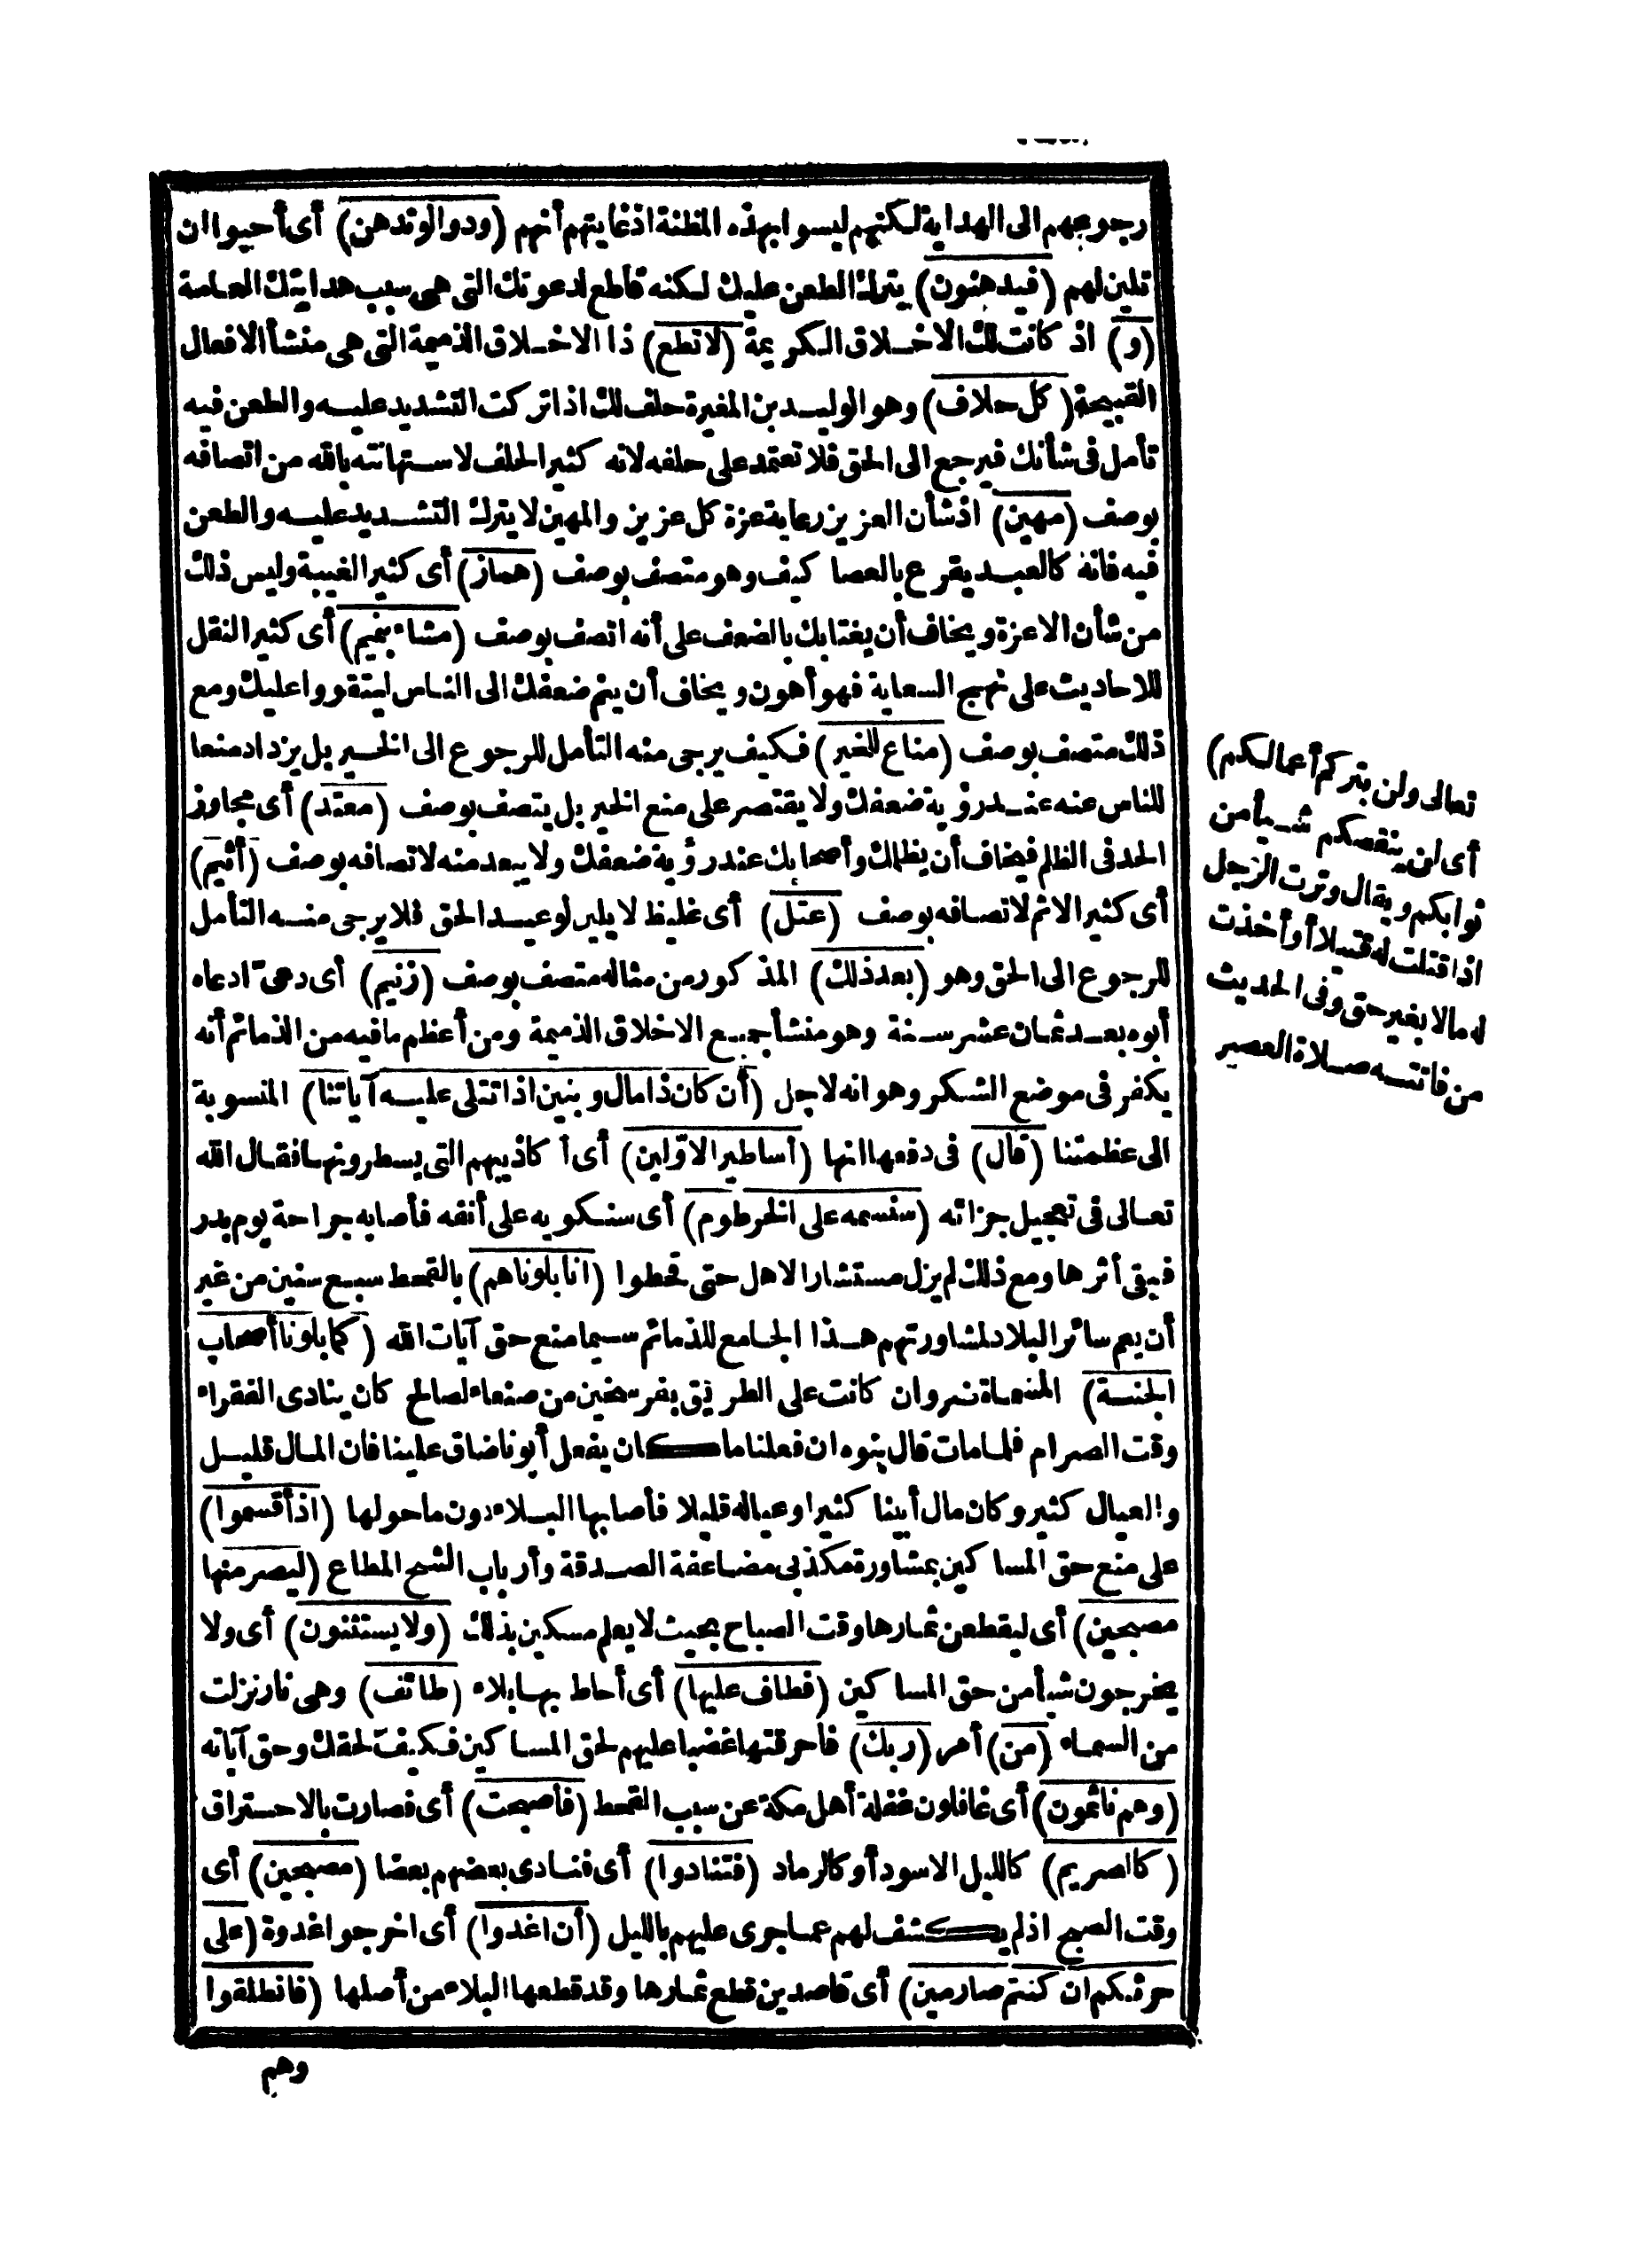 رجوعهم الى الهداية لكنهم ليسوا بهذه المظنة اذ غايتهم أنهم (ودوا لو تدهن) أى أحبوا ان
تلين لهم (فيدهنون) بترك الطعن عليك لكنه قاطع لدعوتك التى هى سبب هدايتك العامة
(و) اذ كانت لك الاخلاق الكريمة (لا تطع) ذا الاخلاق الذميمة التى هى منشأ الافعال
القبيحة (كل حلاف) وهو الوليد بن المغيرة حلف لك اذا تركت التشديد عليه والطعن فيه
تأمل فى شأنك فيرجع الى الحق فلا تعتمد على حلفه لانه كثير الحلف لاستهانته بالله من اتصافه
بوصف (مهين) اذ شأن العزيز رعاية عزة كل عزيز والمهين لا يترك التشديد عليه والطعن
فيه فانه كالعبد يقرع بالعصا كيف وهو متصف بوصف (هماز) أى كثير الغيبة وليس ذلك
من شأن الاعزة ويخاف أن يغتابك بالضعف على أنه اتصف بوصف (مشاء بنميم) أى كثير النقل
للاحاديث على نهج السعاية فهو أهون ويخاف أن ينم ضعفك الى الناس ليتقووا عليك ومع
ذلك متصف بوصف (مناع للخير) فكيف يرجى منه التأمل للرجوع الى الخير بل يزداد منعا
للناس عنه عند رؤية ضعفك ولا يقتصر على منع الخير بل يتصف بوصف (معتد) أى مجاوز
الحد فى الظلم فيخاف أن يظلمك وأصحابك عند رؤية ضعفك ولا يبعد منه لاتصافه بوصف (أثيم)
أى كثير الاثم لاتصافه بوصف (عتل) أى غليظ لا يلين لوعيد الحق فلا يرجى منه التأمل
للرجوع الى الحق وهو (بعد ذلك) المذكور من مثاله متصف بوصف (زنيم) أى دعىّ ادعاه
أبوه بعد ثمان عشر سنة وهو منشأ جميع الاخلاق الذميمة ومن أعظم ما فيه من الذمائم أنه
يكفر فى موضع الشكر وهو انه لاجل (أن كان ذا مال وبنين اذا تتلى عليه آياتنا) المنسوبة
الى عظمتنا (قال) فى دفعها انها (أساطير الاوّلين) أى أكاذيبهم التى يسطرونها فقال الله
تعالى فى تعجيل جزائه (سنسمه على الخرطوم) أى سنكويه على أنفه فأصابه جراحة يوم بدر
فبقى أثرها ومع ذلك لم يزل مستشار الاهل حتى قحطوا (انا بلوناهم) بالقحط سبع سنين من غير
أن يعم سائر البلاد لمشاورتهم هذا الجامع للذمائم سيما منع حق آيات الله (كما بلونا أصحاب
الجنة) المسماة ضروان كانت على الطريق بفرسخين من صنعاء لصالح كان ينادى الفقراء
وقت الصرام فلما مات قال بنوه ان فعلنا ما كان يفعل أبونا ضاق علينا فان المال قليل
والعيال كثير وكان مال أبينا كثيرا وعياله قليلا فأصابها البلاء دون ما حولها (اذ أقسموا)
على منع حق المساكين بمشاورة مكذبى مضاعفة الصدقة وأرباب الشح المطاع (ليصرمنها
مصبحين) أى ليقطعن ثمارها وقت الصباح بحيث لا يعلم مسكين بذلك (ولا يستثنون) أى ولا
يخرجون شيأ من حق المساكين (فطاف عليها) أى أحاط بها بلاء (طائف) وهى نار نزلت
من السماء (من) أمر (ربك) فأحرقتها غضبا عليهم لحق المساكين فكيف لحقك وحق آياته
(وهم نائمون) أى غافلون غفلة أهل مكة عن سبب القحط (فأصبحت) أى فصارت بالاحتراق
(كالصريم) كالليل الاسود أو كالرماد (فتنادوا) أى فنادى بعضهم بعضا (مصبحين) أى
وقت الصبح اذ لم يكشف لهم عما جرى عليهم بالليل (أن اغدوا) أى اخرجوا غدوة (على
حرثكم ان كنتم صارمين) أى قاصدين قطع ثمارها وقد قطعها البلاء من أصلها (فانطلقوا
وهم
تعالى ولن يتركم أعمالكم)
أى لن ينقصكم شيأ من
ثوابكم ويقال وترت الرجل
اذا قتلت له قتيلا أو أخذت
له مالا بغير حق وفى الحديث
من فاتته صلاة العصر